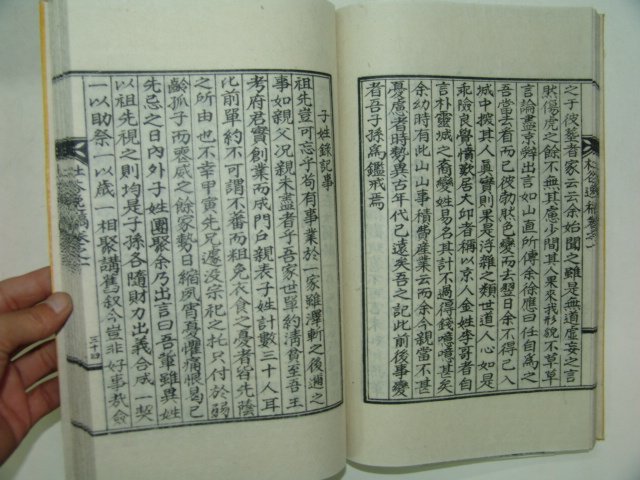 之子從葬者家云云余始聞之雖是無道虛妄之言
猷傷虎之餘不無其慮少間其人果來我形貌不草草
言論盡京辨出言如山直所傳余徐應曰任自爲之
吾當去看而已彼勃肰色變而去翌日余不得已入
城中搜其人眞贗則果是浮雜之類世道人心如是
乖險良覺憤歎居大邱者稱以京人金姓李哥者自
言朴靈城之裔變姓易名其計不過得錢噫噫甚矣
余幼時有此山山事積費産業云而余今親當不甚
憂慮者時勢異古年代已遠矣吾之記此前後事變
者吾子孫爲鑑戒焉
子姓錢記事
祖先豈可忘乎苟有事業於一家雖澤斬之後遡之
事如親父況親未盡者乎吾家世單約淸貧至吾王
考府君實創業而成門戶親表子姓計數三十人耳
比前單約不可謂不蕃而祖免衣食之憂者皆先蔭
之所由也不幸甲寅先兄遽沒宗祀之托只付於弱
齡孤子而喪威之餘家勢日縮夙宵憂懼痛恨曷已
先忌之日內外子姓團聚余乃出言曰吾輩雖異姓
以祖先視之則均是子孫各隨財力出義合成一契
一以助祭一以歲一相聚講舊叙今豈非好事哉僉
三十四